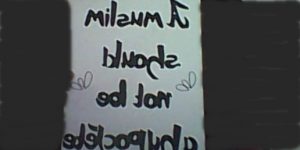 A muslim
should
not be
a hypocrite